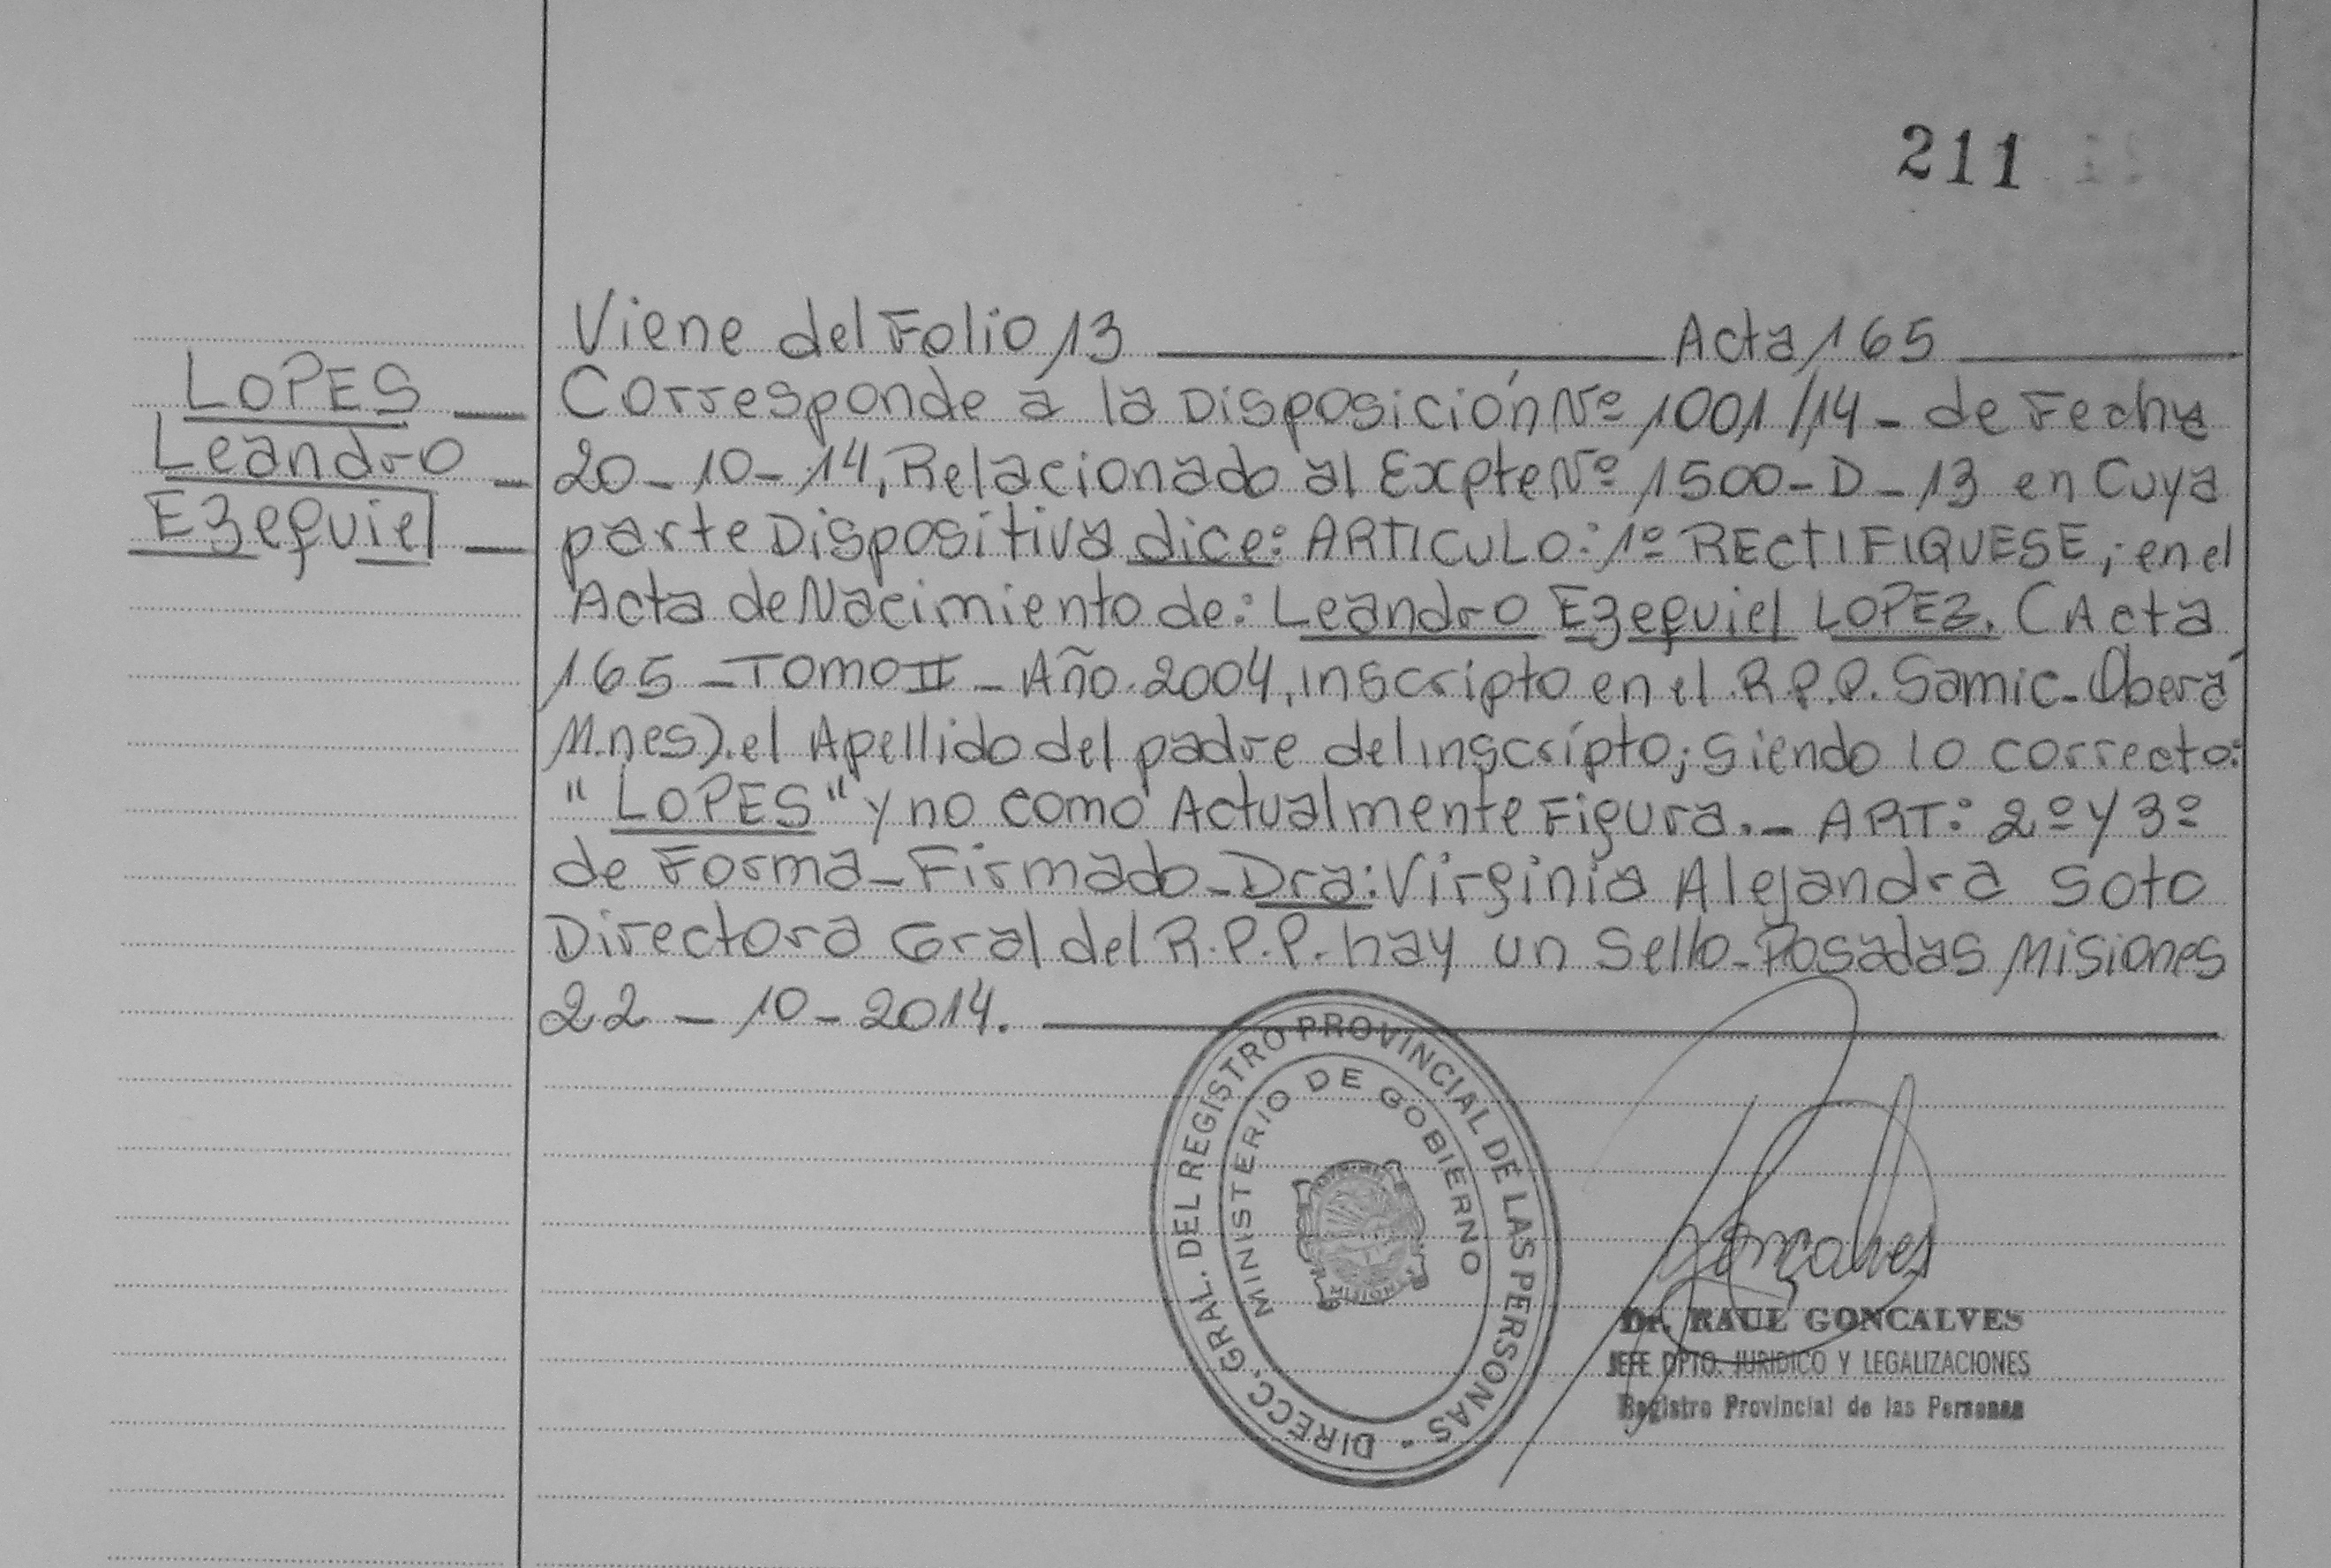 211
Viene del Folio 13 Acta 165
LOPES
Leandro
Ezequiel
Corresponde a la Disposición Nº 1001/14 - de Fecha
20-10-14, Relacionado al Expte Nº 1500-D-13 en Cuya
parte Dispositiva dice: ARTICULO: 1º RECTIFIQUESE; en el
Acta de Nacimiento de: Leandro Ezequiel LOPEZ. (Acta
165 - TOMO II - Año 2004, inscripto en el R.P.P. Samic - Oberá
M.nes). el Apellido del padre del inscripto; siendo lo correcto:
"LOPES" y no como Actualmente Figura. - ART: 2º y 3º
de Forma - Firmado - Dra: Virginia Alejandra Soto
Directora Gral del R.P.P. hay un Sello - Posadas Misiones
22-10-2014.
DIRECC. GRAL. DEL REGISTRO PROVINCIAL DE LAS PERSONAS
MINISTERIO DE GOBIERNO
MISIONES
Gonçalves
Dr. RAUL GONCALVES
JEFE DPTO. JURIDICO Y LEGALIZACIONES
Registro Provincial de las Personas